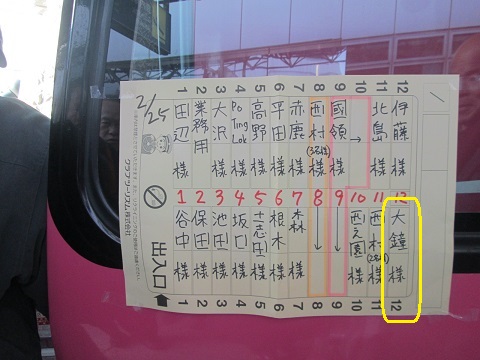 2/25
出入口
1 田辺 様
2 業務用
3 大沢 様
4 Po Ting Lok 様
5 高野 様
6 平田 様
7 赤鹿 様
8 西村 (3名様) 様
9 國領 様
10 →
11 北島 様
12 伊藤 様
1 2 3 4 5 6 7 8 9 10 11 12
1 谷中 様
2 保田 様
3 池田 様
4 坂口 様
5 志田 様
6 根木 様
7 森 様
8 ↓
9 ↓
10 西之園 様
11 西村 (2名様) 様
12 大鐘 様
クラブツーリズム株式会社